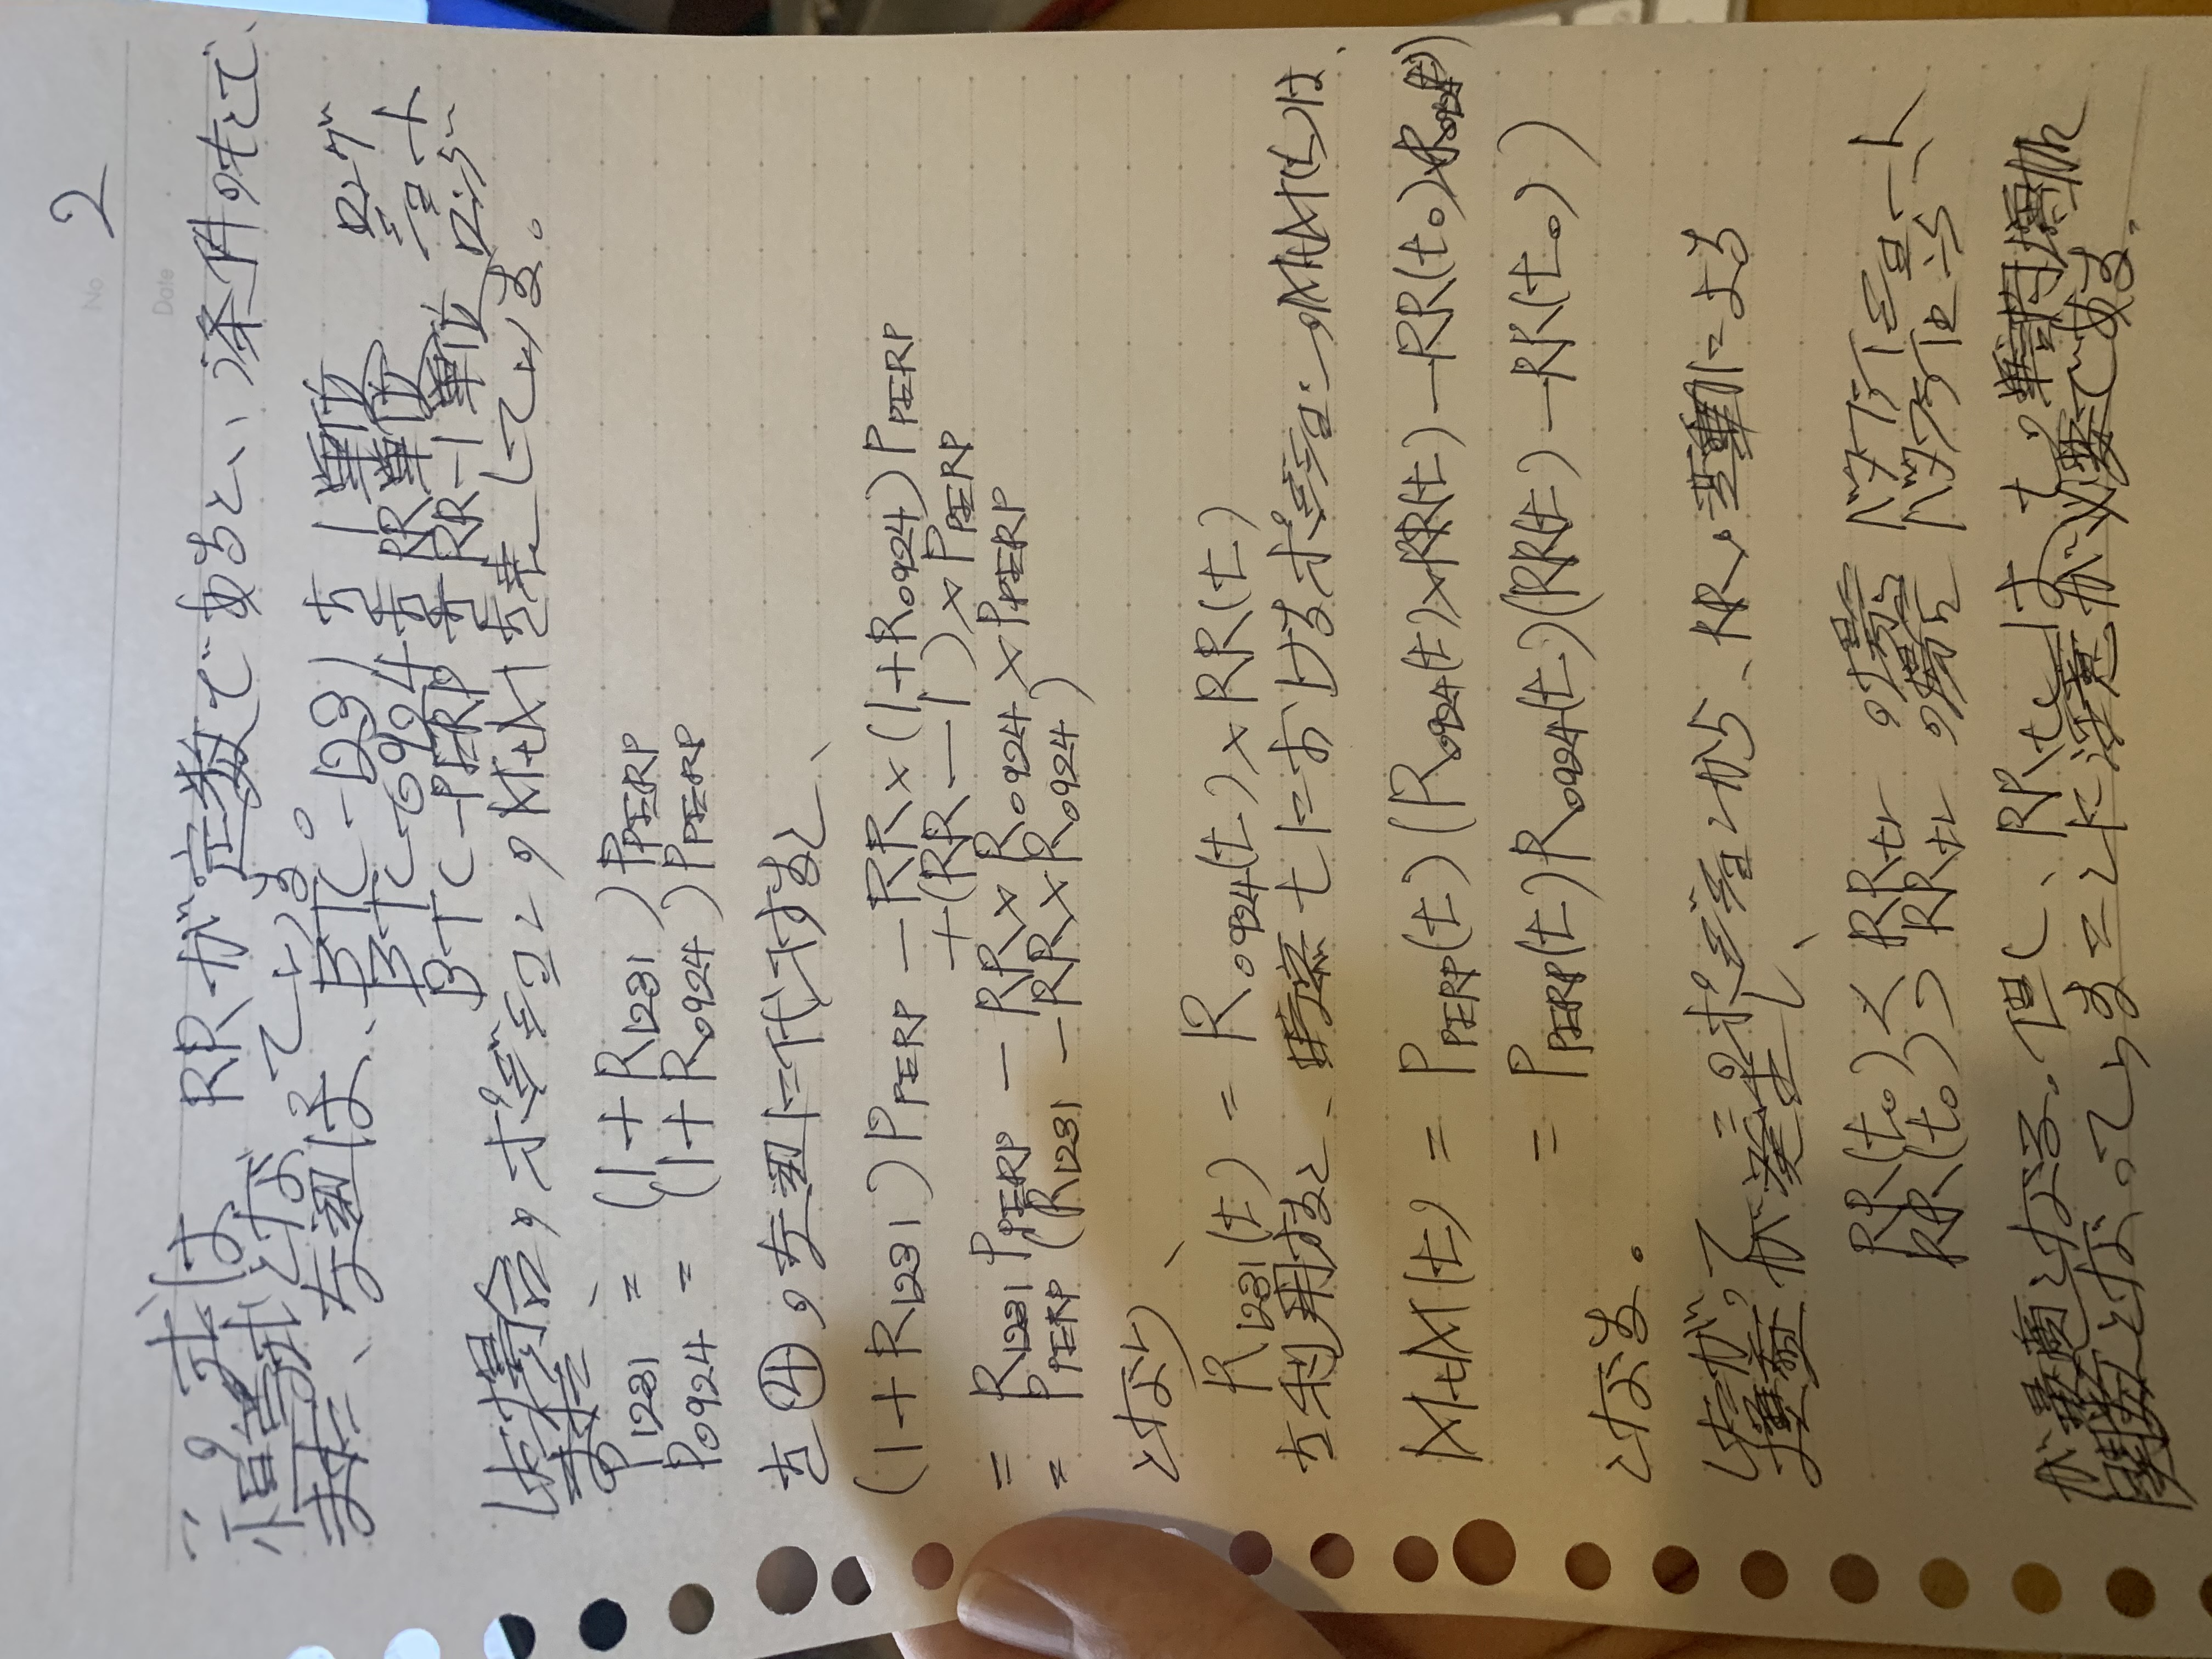 No. 2
Date
この式は RRが定数であるという条件のもとで、
恒等式となっている。
また、左辺は、BTC-1231を1単位 ロング
BTC-0924をRR単位 ショート
BTC-PERPをRR-1単位 ロング
した場合のポジションのMtMを表している。
また、
P1231 = (1+R1231)PPERP
P0924 = (1+R0924)PPERP
を④の左辺に代入すると、
(1+R1231)PPERP − RR×(1+R0924)PPERP
+(RR−1)×PPERP
= R1231 PPERP − RR×R0924×PPERP
= PPERP(R1231 − RR×R0924)
となり、
R1231(t) = R0924(t)×RR(t)
を利用すると、時点tにおけるポジションのMtM(t)は、
MtM(t) = PPERP(t)(R0924(t)×RR(t)−RR(t0)×R0924(t))
= PPERP(t)R0924(t)(RR(t)−RR(t0))
となる。
したがって このポジションから、RRの変動による
損益が発生し、
RR(t0) < RRtv の場合 バタフライショート
RR(t0) > RRtv の場合 バタフライロング
が最適となる。但し、RRtv は tの単調増加
関数となっていることに注意が必要である。